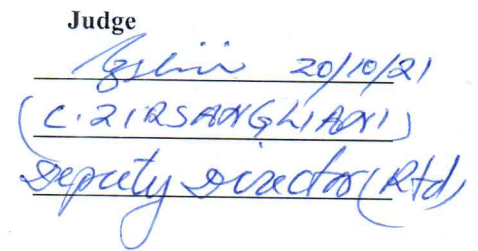 Judge
20/10/21
(C. ZIRSANGLIANI)
Deputy Director (Rtd)